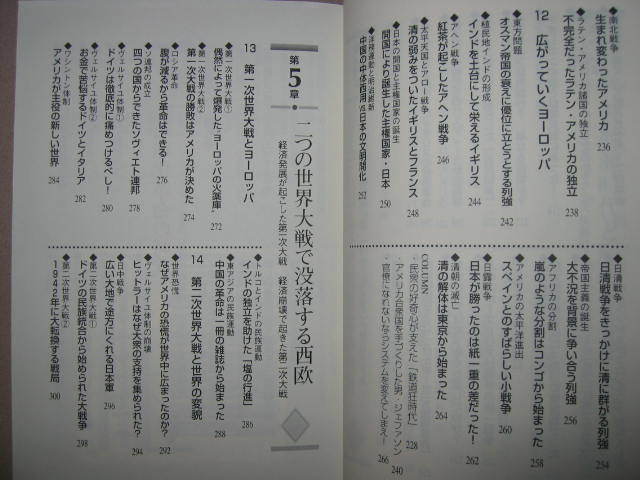 ◆南北戦争
生まれ変わったアメリカ 236
◆ラテン・アメリカ諸国の独立
不完全だったラテン・アメリカの独立 238
12 広がっていくヨーロッパ
◆東方問題
オスマン帝国の衰えに優位に立とうとする列強 242
◆植民地インドの形成
インドを土台にして栄えるイギリス 244
◆アヘン戦争
紅茶が起こしたアヘン戦争 246
◆太平天国とアロー戦争
清の弱みをついたイギリスとフランス 248
◆日本の開国と主権国家の誕生
開国により誕生した主権国家・日本 250
◆洋務運動と明治維新
中国の中体西用、日本の文明開化 252
◆日清戦争
日清戦争をきっかけに清に群がる列強 254
◆帝国主義の誕生
大不況を背景に争い合う列強 256
◆アフリカの分割
嵐のような分割はコンゴから始まった 258
◆アメリカの太平洋進出
スペインとのすばらしい小戦争 260
◆日露戦争
日本が勝ったのは紙一重の差だった! 262
◆清朝の滅亡
清の解体は東京から始まった 264
COLUMN
・民衆の好奇心が支えた「鉄道狂時代」 228
・アメリカ合衆国を手づくりした男・ジェファソン 240
・官僚になれないならシステムを変えてしまえ! 266
第5章・二つの世界大戦で没落する西欧
経済発展が起こした第一次大戦 経済崩壊で起きた第二次大戦
13 第一次世界大戦とヨーロッパ
◆第一次世界大戦①
偶然によって爆発した「ヨーロッパの火薬庫」 272
◆第一次世界大戦②
第一次大戦の勝敗はアメリカが決めた 274
◆ロシア革命
腹が減るから革命はできる! 276
◆ソ連邦の成立
四つの国からできたソヴィエト連邦 278
◆ヴェルサイユ体制①
ドイツは徹底的に痛めつけるべし! 280
◆ヴェルサイユ体制②
お金で苦悩するドイツとイタリア 282
◆ワシントン体制
アメリカが主役の新しい世界 284
◆トルコとインドの民族運動
インドの独立を助けた「塩の行進」 286
◆東アジアの民族運動
中国の革命は一冊の雑誌から始まった 288
14 第二次世界大戦と世界の変貌
◆世界恐慌
なぜアメリカの恐慌が世界中に広まったのか? 292
◆ヴェルサイユ体制の崩壊
ヒットラーはなぜ大衆の支持を集められた? 294
◆日中戦争
広い大地で途方にくれる日本軍 296
◆第二次世界大戦①
ドイツの民族統合から始められた大戦争 298
◆第二次世界大戦②
1942年に大転換する戦局 300